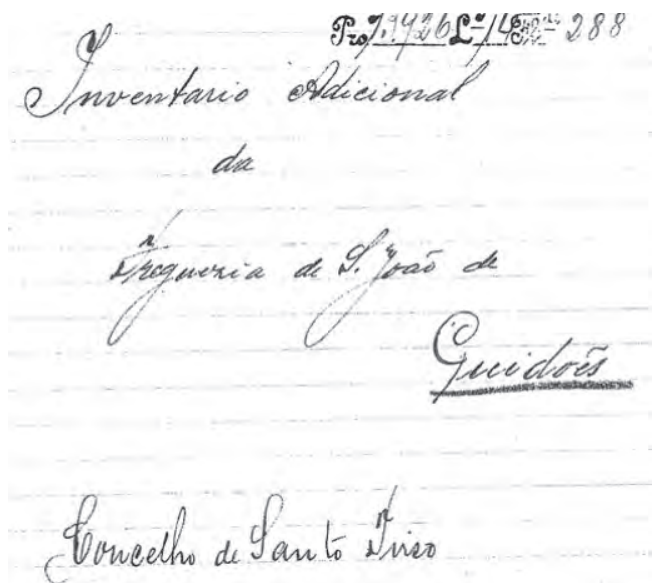 Pro 7.1426 L.º 14 288
Inventario Adicional
da
Freguesia de S. João de
Guidões
Concelho de Santo Tirso